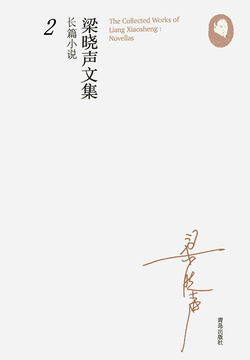 2
长篇小说
梁晓声文集
The Collected Works of
Liang Xiaosheng :
Novellas
梁晓声
青岛出版社